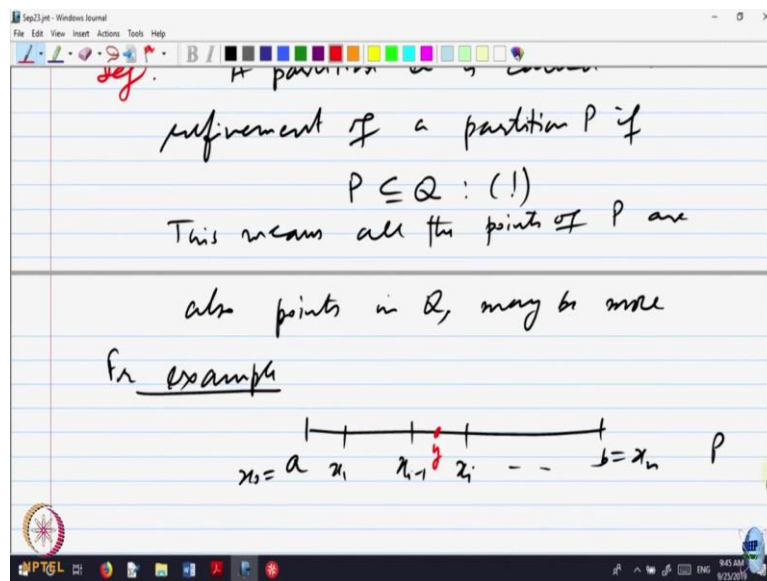 Sep23.jnt - Windows Journal
File Edit View Insert Actions Tools Help
B I
Def. A partition Q is called
refinement of a partition P if
P ⊆ Q : (!)
This means all the points of P are
also points in Q, may be more
For example
x₀ = a x₁ xᵢ₋₁ y xᵢ - - b = xₙ P
NPTEL
ENG 9:45 AM
9/25/2019